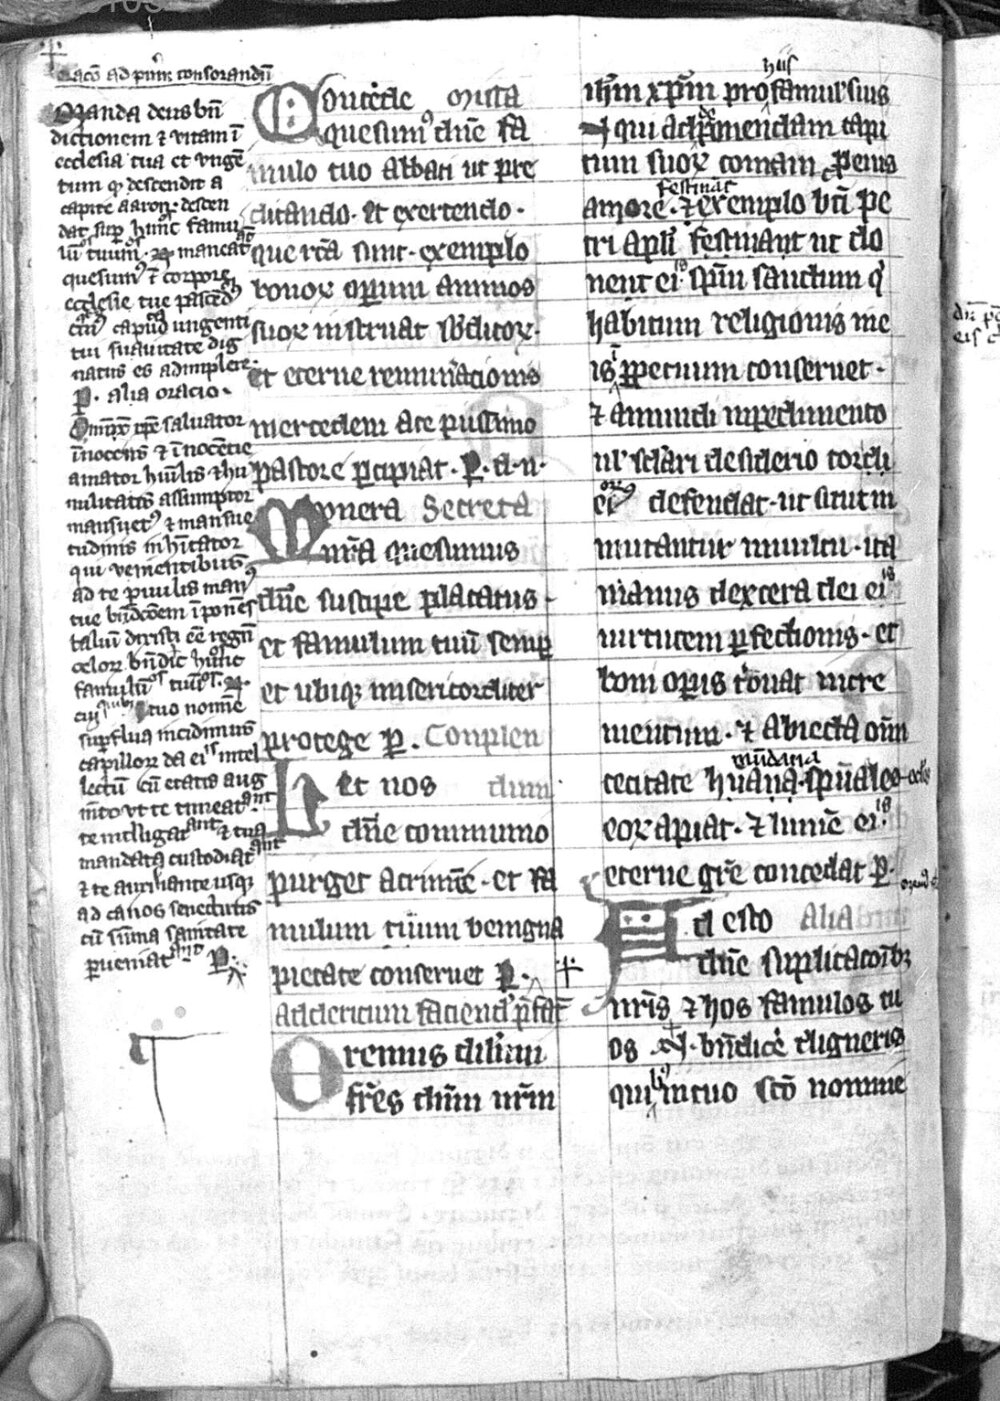 Oracõ ad pim̃ consorandũ
Manda deus bñ
dictionem ⁊ vitam ĩ
ecclesia tua et vnge
tum qͥ descendit a
capite aaron· descen
dat sup hunc famu
lũ tuum· ⁊ maneat
quesumꝰ ĩ corpore
ecclesie tue pascẽd
cuiꝰ capud ungenti
tui suauitate dig
natus es adimplere·
P̱· alia oracio·
saluator
ĩnocens ⁊ ĩnocẽcie
amator humĩlis ⁊ hu
militatis assumptor
mansuetꝰ ⁊ mansue
tudinis inhĩtator
qui venientibus
ad te puulis manꝰ
tue bñdcõem ĩponẽs
taliũ dixisti eẽ regñ
celoꝝ bñdic hũc
famulũ tuũ· N·
cuiꝰ tuo nomĩe
supflua incidimus
capilloꝝ da ei intel
lectũ cũ etatis aug
mẽto vt te timeat·
te intelligat ⁊ tua
mandata custodiat
⁊ te auxiliante usqꝫ
ad canos senectutis
cũ sũma sanitate
pueniat P̱·
Concede missa
quesumꝰ dñe fa
mulo tuo abbati ut pre
dicando· et exercendo·
que rc̃a sunt· exemplo
bonoꝝ opum animos
suoꝝ instruat sb̃ditoꝝ·
et eterne remunãcionis
mercedem a te piissimo
pastore pcipiat· P̱· d· n·
Munera Secreta
nrã quesumus
dñe suscipe placatus·
et famulum tuũ semp
et ubiqꝫ misericorditer
protege P̱· Conplen
Et nos dum
dñe communio
purget a crimĩe· et fa
mulum tuum benigna
pietate conseruet P̱·
Ad clericum faciend
Oremus dil̃mi
frẽs dñm nrm̃
ihm̃ xpm̃ pro hiis famul suis
qui ad deponendam capi
tum suoꝝ comam p eius
amore· festinat ⁊ exemplo bti pe
tri apl̃i festinant ut do
nent ei spm̃ sanctum qͥ
habitum religionis in e
is ppetuum conseruet·
⁊ a mundi inpedimento
ul scłari desiderio corda
eiꝰ defendat· ut sicut in
mutantur in uultu· ita
manus dextera dei ei
uirtutem pfectionis· et
boni opis t'buat incre
mentum· ⁊ ab iecta om̃
cecitate hũana· mũdana spũales oc̃ls
eoꝝ apiat· ⁊ lumẽ ei
eterne grẽ concedat P̱·
Adesto Alia
dñe suplicacoĩbꝫ
nrĩs ⁊ hos famulos tu
os N· bñdicẽ digneris
quibꝰ in tuo scõ nomine